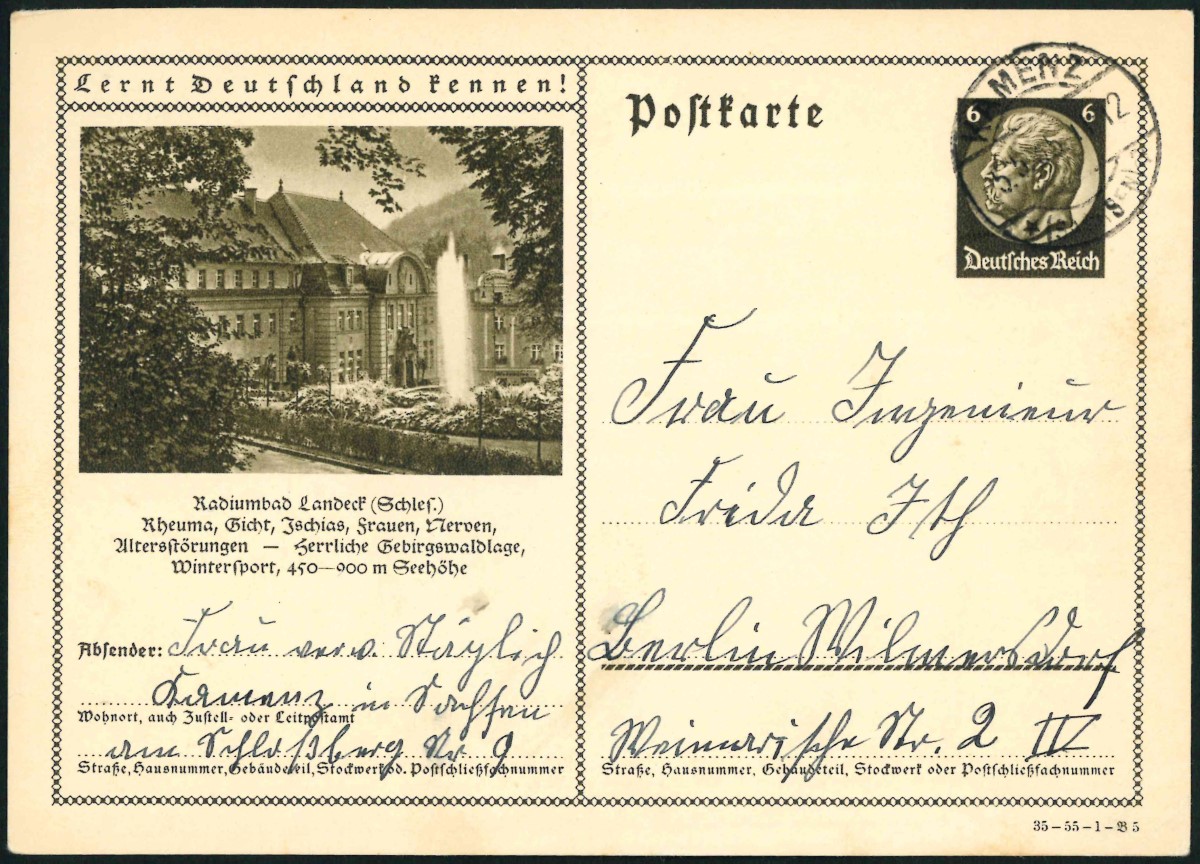 Lernt Deutschland kennen!
Postkarte
KAMENZ
(SACHSEN)
12
6 6
Deutsches Reich
Radiumbad Landeck (Schles.)
Rheuma, Gicht, Ischias, Frauen, Nerven,
Altersstörungen — Herrliche Gebirgswaldlage,
Wintersport, 450—900 m Seehöhe
Absender: Frau verw. Stäglich
Kamenz in Sachsen
Wohnort, auch Zustell- oder Leitpostamt
am Schloßberg Nr 9
Straße, Hausnummer, Gebäudeteil, Stockwerk od. Postschließfachnummer
Frau Ingenieur
Frida Ith
Berlin Wilmersdorf
Weimarische Str. 2 IV
Straße, Hausnummer, Gebäudeteil, Stockwerk oder Postschließfachnummer
35—55—1—B 5